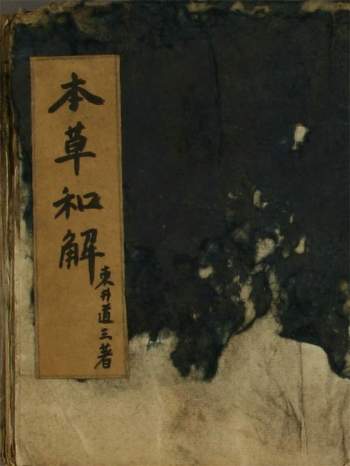 本草和解
東井道三著